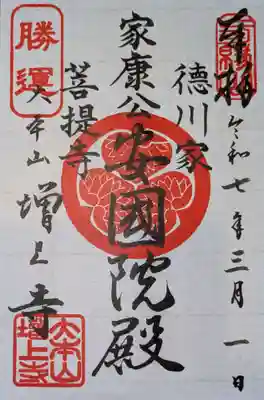 奉拝
令和七年三月一日
徳川家
安國院殿
家康公
菩提寺
勝運
大本山
増上寺
大本山
増上寺